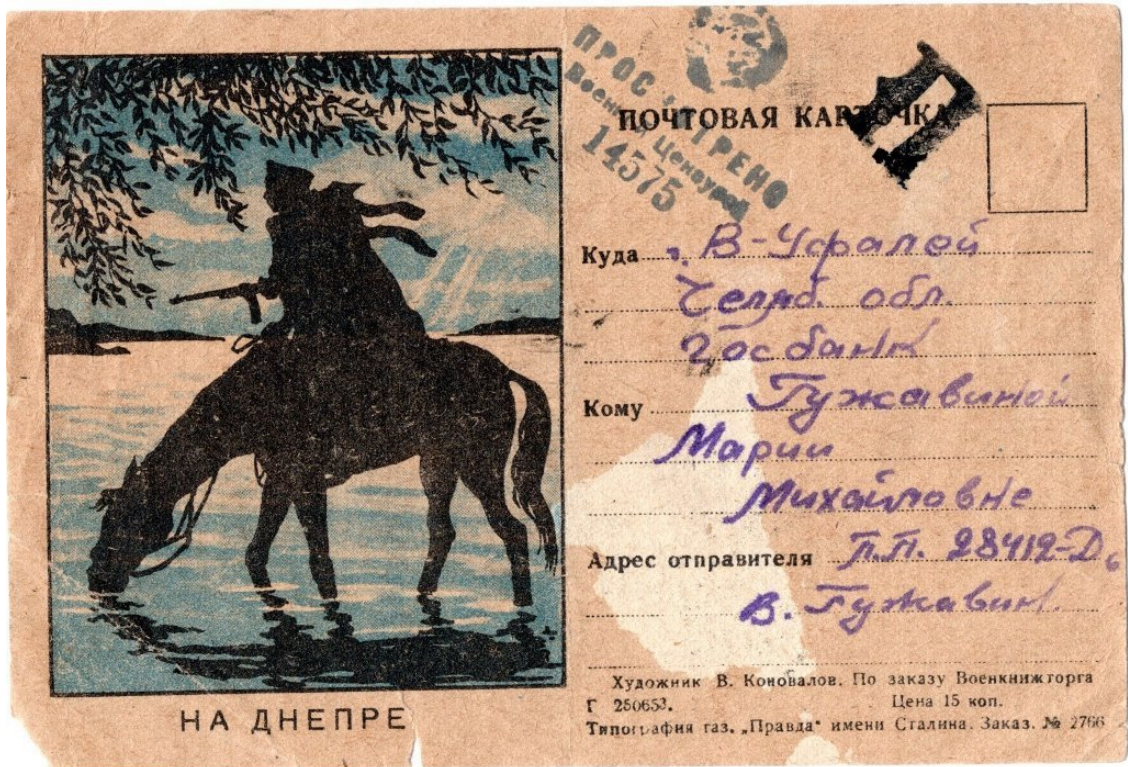 ПРОСМОТРЕНО
Военной Цензурой
14575
ПОЧТОВАЯ КАРТОЧКА
Куда В-Уфалей
Челяб. обл.
Госбанк
Кому Гужавиной
Марии
Михайловне
Адрес отправителя П.П. 28412-Д
В. Гужавин.
НА ДНЕПРЕ
Художник В. Коновалов. По заказу Военкнижторга
Г 250653. Цена 15 коп.
Типография газ. „Правда“ имени Сталина. Заказ. № 2766